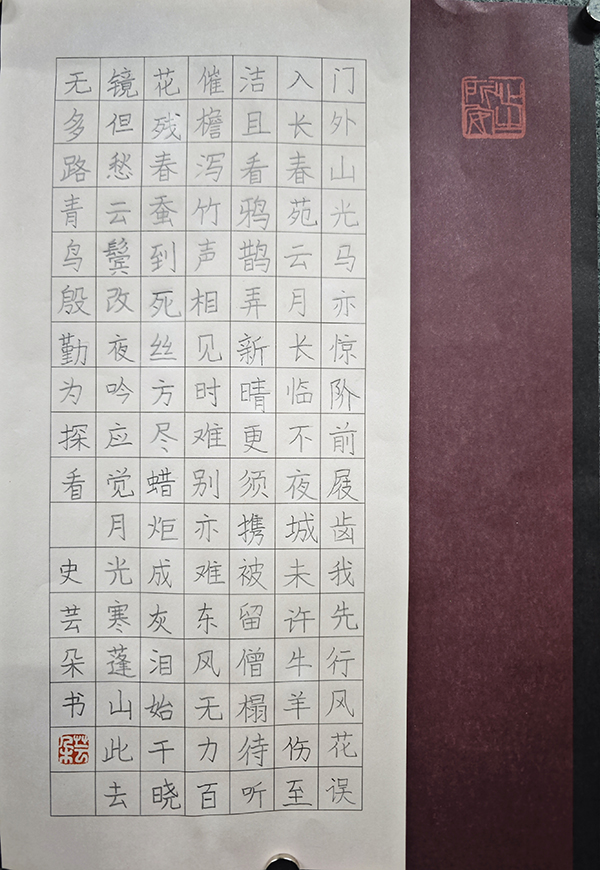 门外山光马亦惊阶前屐齿我先行风花误
入长春苑云月长临不夜城未许牛羊伤至
洁且看鸦鹊弄新晴更须携被留僧榻待听
催檐泻竹声相见时难别亦难东风无力百
花残春蚕到死丝方尽蜡炬成灰泪始干晓
镜但愁云鬓改夜吟应觉月光寒蓬山此去
无多路青鸟殷勤为探看 史芸朵书
芸朵